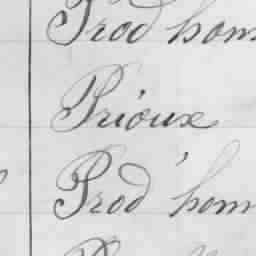 Prod'hom
Prioux
Prod'hom